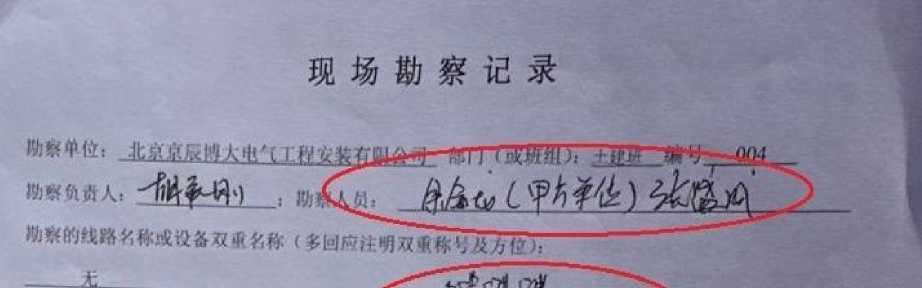 现场勘察记录
勘察单位：北京京辰博大电气工程安装有限公司 部门（或班组）：土建班 编号 004
勘察负责人： ；勘察人员： （甲方单位）张盛
勘察的线路名称或设备双重名称（多回应注明双重称号及方位）：
无